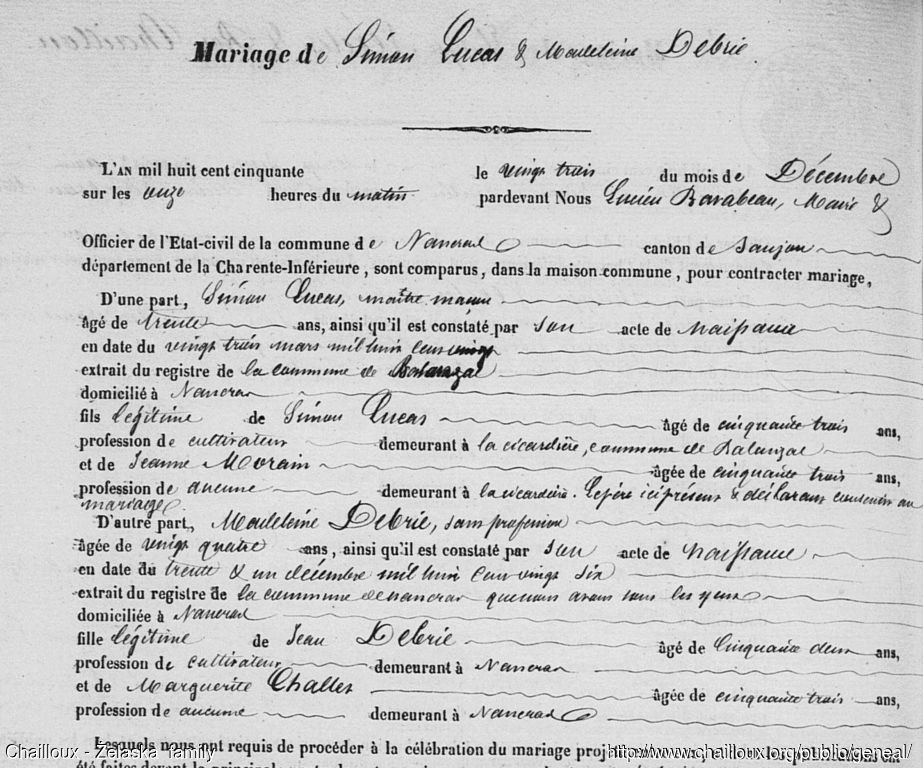 Mariage de Simon Lucas & Madeleine Debrie.
L'AN mil huit cent cinquante le vingt trois du mois de Décembre
sur les onze heures du matin pardevant Nous Lucien Barabeau, Maire &
Officier de l'Etat-civil de la commune de Nancras canton de Saujon
département de la Charente-Inférieure, sont comparus, dans la maison commune, pour contracter mariage,
D'une part, Simon Lucas, maître maçon
âgé de trente ans, ainsi qu'il est constaté par son acte de naissance
en date du vingt trois mars mil huit cent vingt
extrait du registre de la commune de Balanzac
domicilié à Nancras
fils légitime de Simon Lucas âgé de cinquante trois ans,
profession de cultivateur demeurant à la cicardière, commune de Balanzac
et de Jeanne Morain âgée de cinquante trois ans,
profession de aucune demeurant à la cicardière. Le père ici présent & déclarant consentir au
mariage.
D'autre part, Madeleine Debrie, sans profession
âgée de vingt quatre ans, ainsi qu'il est constaté par son acte de naissance
en date du trente & un décembre mil huit cent vingt six
extrait du registre de la commune de nancras que nous avons sous les yeux
domiciliée à Nancras
fille légitime de Jean Debrie âgé de Cinquante deux ans,
profession de cultivateur demeurant à Nancras
et de Marguerite Challes âgée de cinquante trois ans,
profession de aucune demeurant à Nancras
Lesquels nous ont requis de procéder à la célébration du mariage projeté
Chailloux - Zelaska family http://www.chailloux.org/public/geneal/